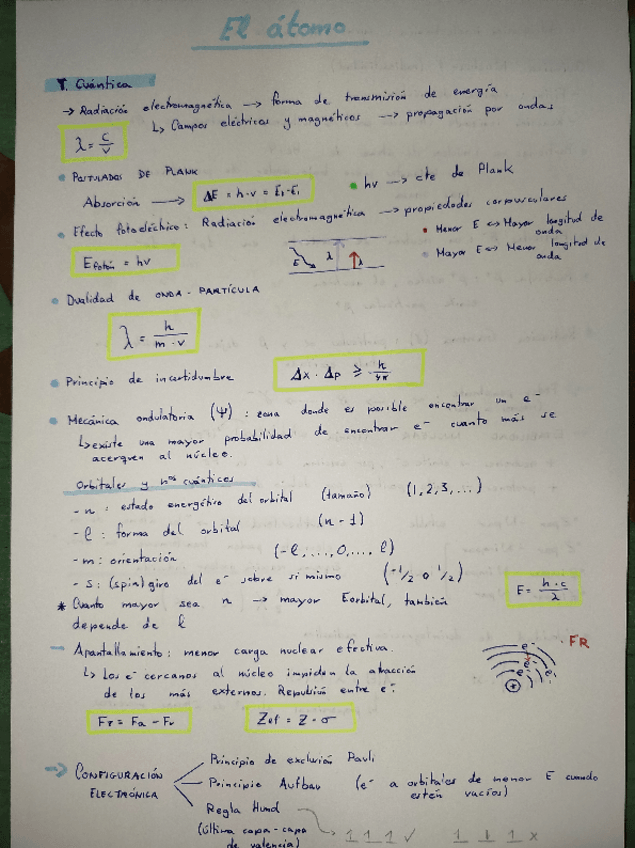 El átomo
T. Cuántica
→ Radiación electromagnética → forma de transmisión de energía
↳ Campos eléctricos y magnéticos → propagación por ondas
λ = c/ν
• POSTULADOS DE PLANK
Absorción → ΔE = h·ν = E₂-E₁ • hν → cte de Plank
• Efecto fotoeléctrico: Radiación electromagnética → propiedades corpusculares
• Menor E ↔ Mayor longitud de onda
• Mayor E ↔ Menor longitud de onda
Efotón = hν
E λ λ
• Dualidad de ONDA - PARTÍCULA
λ = h/m·v
• Principio de incertidumbre Δx · Δp ≥ h/4π
• Mecánica ondulatoria (Ψ): zona donde es posible encontrar un e⁻
↳ existe una mayor probabilidad de encontrar e⁻ cuanto más se
acerquen al núcleo.
Orbitales y nºs cuánticos
- n: estado energético del orbital (tamaño) (1,2,3,...)
- l: forma del orbital (n-1)
- m: orientación (-l,...,0,..., l)
- s: (spin) giro del e⁻ sobre si mismo (-1/2 o 1/2)
E = h·c/λ
* Cuanto mayor sea n → mayor Eorbital, también
depende de l
- Apantallamiento: menor carga nuclear efectiva.
↳ Los e⁻ cercanos al núcleo impiden la atracción
de los más externos. Repulsión entre e⁻.
FR
e⁻
e⁻
e⁻
e⁻
+
FT = Fa - Fr Zef = Z - σ
→ CONFIGURACIÓN
ELECTRÓNICA
Principio de exclusión Pauli
Principio Aufbau (e⁻ a orbitales de menor E cuando
estén vacíos)
Regla Hund
(última capa - capa
de valencia)
1 1 1 ✓ 1 ↓ 1 x